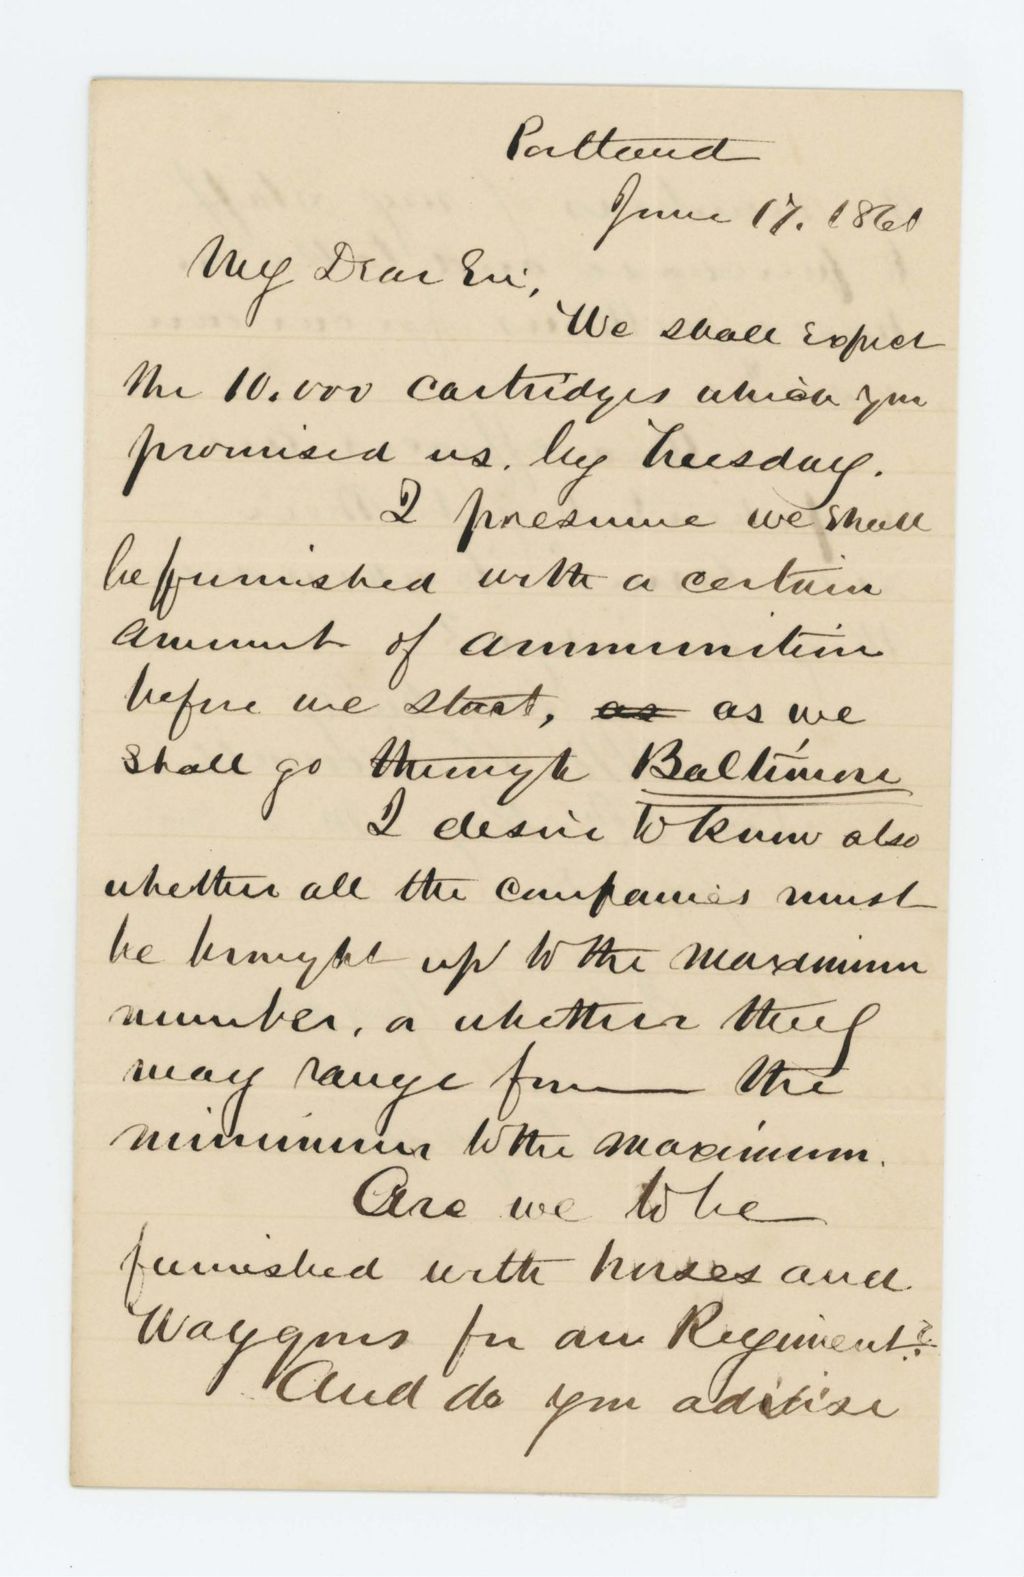 Portland
June 17. 1861
My Dear Sir,
We shall expect
the 10.000 cartridges which you
promised us. by Tuesday.
I presume we shall
be furnished with a certain
amount of ammunition
before we start, as as we
shall go through Baltimore
I desire to know also
whether all the companies must
be brought up to the maximum
number, or whether they
may range from the
minimum to the maximum.
Are we to be
furnished with horses and
Waggons for our Regiment?
And do you advise